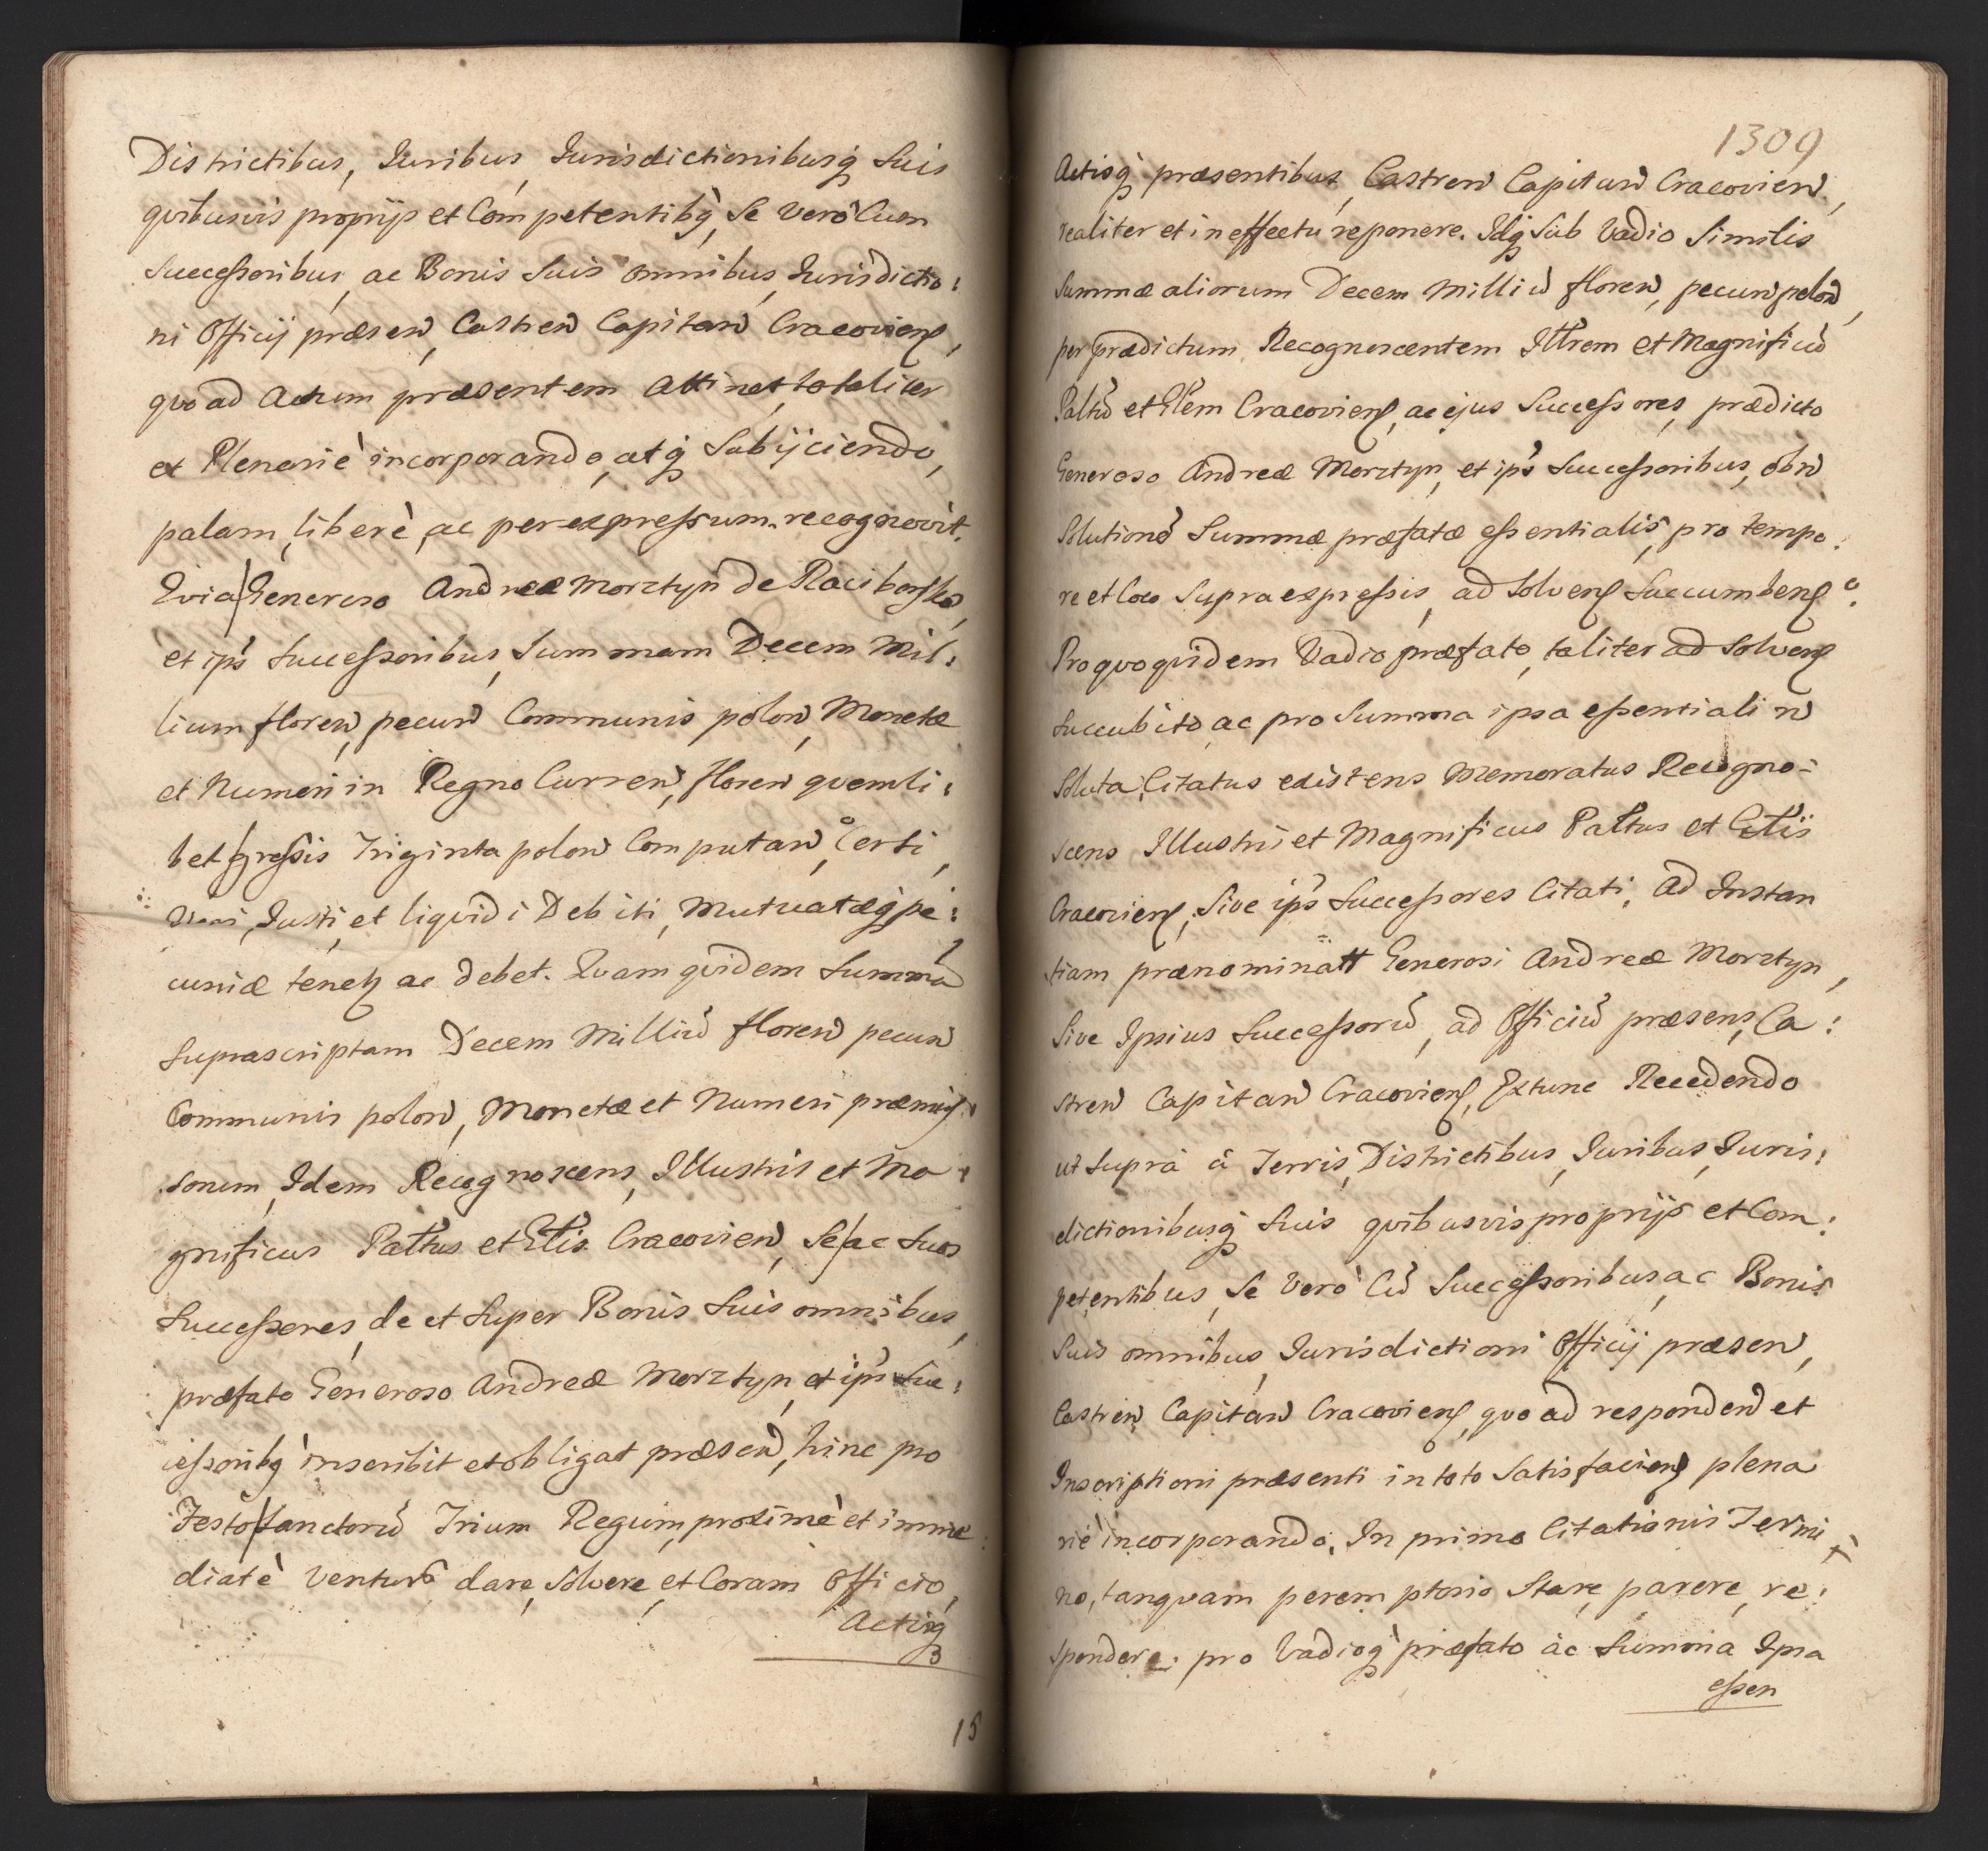 Districtibus, Iuribus, Iurisdictionibusq́ Suis
qvibusvis proprijs et Competentibq́, Se verò Cum
Successoribus, ac Bonis Suis omnibus, Iurisdictio:
ni Officij præsen̄, Castren̄ Capitan̄ Cracovien̄,
qvo ad Actum præsentem attinet, totaliter
et Plenariè incorporando, atq́ Subijciendo,
palam, liberè, ac per expressum recognovit.
Qvia Generoso Andreæ Morztyn de Raciborsko,
et ip̄s Successoribus, Summam Decem Mil:
lium floren̄, pecun̄ Communis polon̄, Monetæ
et Numeri in Regno Curren̄, floren̄ qvemli:
bet grossis Triginta polon̄ Computan̄, Certi,
Veri, Iusti, et liqvidi Debiti, Mutuatæq́ pe:
cuniæ tenetꝫ ac debet. Qvam qvidem Summā
Suprascriptam Decem Milliū floren̄ pecun̄
Communis polon̄, Monetæ et Numeri præmis:
sorum, Idem Recognoscens, Illustris et Ma:
gnificus Paltus et Gtis Cracovien̄, Se ac Suos
Successores, de et Super Bonis Suis omnibus,
præfato Generoso Andreæ Morztyn, et ip̄s Suc:
cessoribq́ inscribit et obligat præsen̄, hinc pro
Festo Sanctorū Trium Regum, proximè et imme:
diatè venturo dare, Solvere, et Coram Officio,
Actisq́
15
1309
Actisq́ præsentibus, Castren̄ Capitan̄ Cracovien̄,
realiter et in effectu reponere. Idq́ Sub Vadio Similis
Summæ aliorum Decem Milliū floren̄, pecun̄ polon̄,
per prædictum Recognoscentem Illrem et Magnificū
Paltū et Glem Cracovien̄, ac ejus Successores, prædicto
Generoso Andreæ Morztyn, et ip̄s Successoribus, ob n̄
Solutionē Summæ præfatæ essentialis, pro tempo:
re et loco Supra expressis, ad Solven̄ Succumben̄º.
Pro qvo qvidem Vadio præfato, taliter ad Solven̄
Succubito, ac pro Summa ipsa essentiali n̄
Soluta, Citatus existens Memoratus Recogno:
scens Illustris et Magnificus Paltus et Gtis
Cracovien̄, Sive ip̄s Successores Citati, ad Instan
tiam prænominatt Generosi Andreæ Morztyn,
Sive Ipsius Successorū, ad Officiū præsens, Ca:
stren̄ Capitan̄ Cracovien̄, Extunc Recedendo
ut Suprà à Terris, Districtibus, Iuribus, Iuris:
dictionibusq́ Suis qvibusvis proprijs et Com:
petentibus, Se verò Cū Successoribus, ac Bonis
Suis omnibus, Iurisdictioni Officij præsen̄,
Castren̄ Capitan̄ Cracovien̄, qvo ad responden̄ et
Inscriptioni præsenti in toto Satisfacien̄ plena
riè incorporando, In primo Citationis Termi
no, tanqvam peremptorio Stare, parere, re:
spondere: pro Vadioq́ præfato ac Summa Ipsa
essen